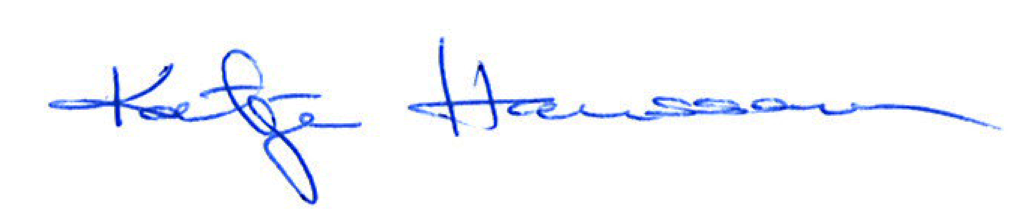 Katja Hanssson